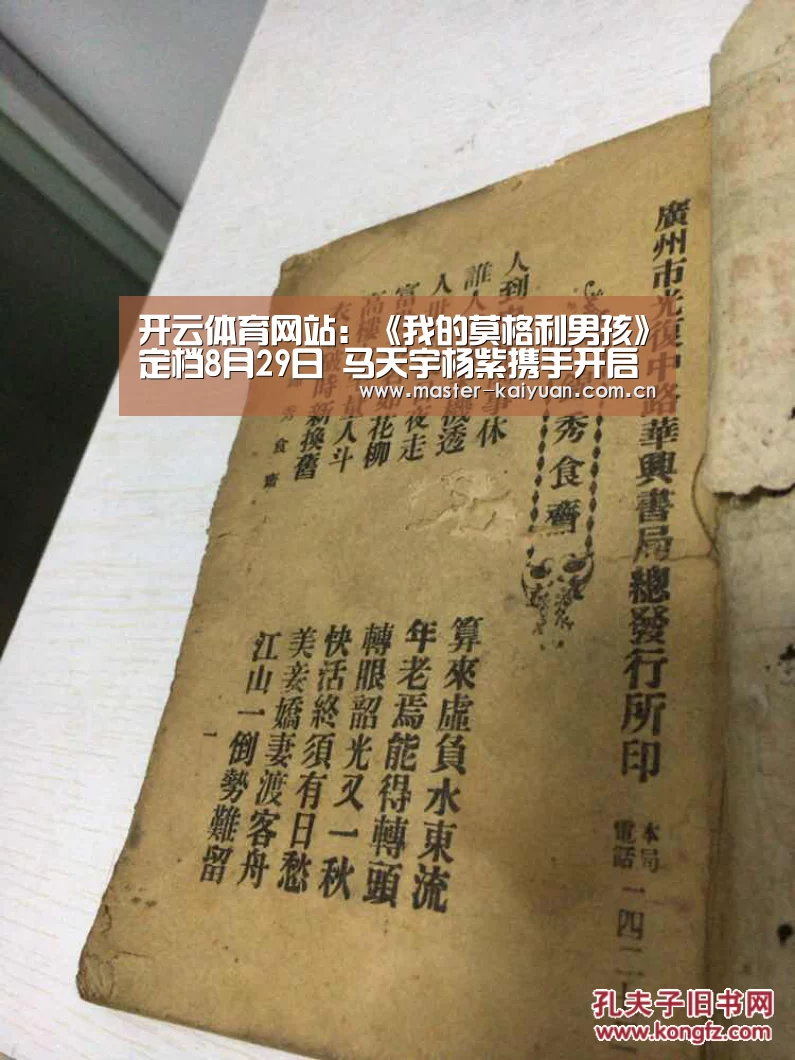 廣州市光復中路華興書局總發行所印
本局
電話一四二
秀食齋
人到
休
誰人
機透
人
夜走
富
高樓
花柳
衣
時新換舊
量人斗
秀食齋
算來虛負水東流
年老焉能得轉頭
轉眼韶光又一秋
快活終須有日愁
美妾嬌妻渡客舟
江山一倒勢難留
一
开云体育网站：《我的莫格利男孩》
定档8月29日 马天宇杨紫携手开启
www.master-kaiyuan.com.cn
孔夫子旧书网
www.kongfz.com